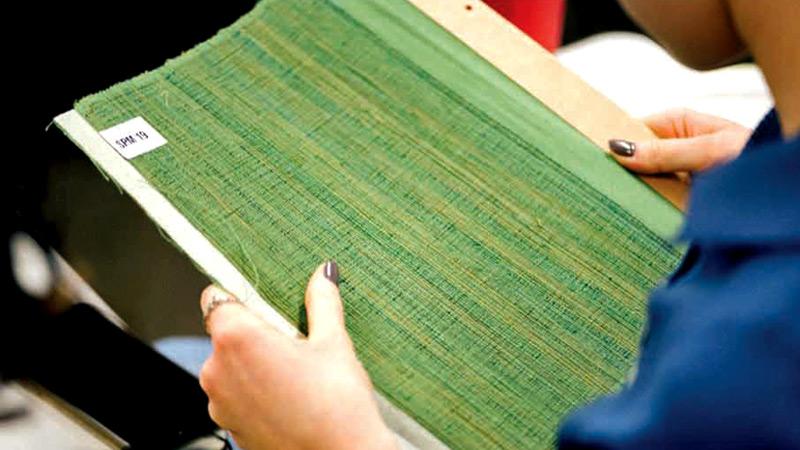 SPM 19